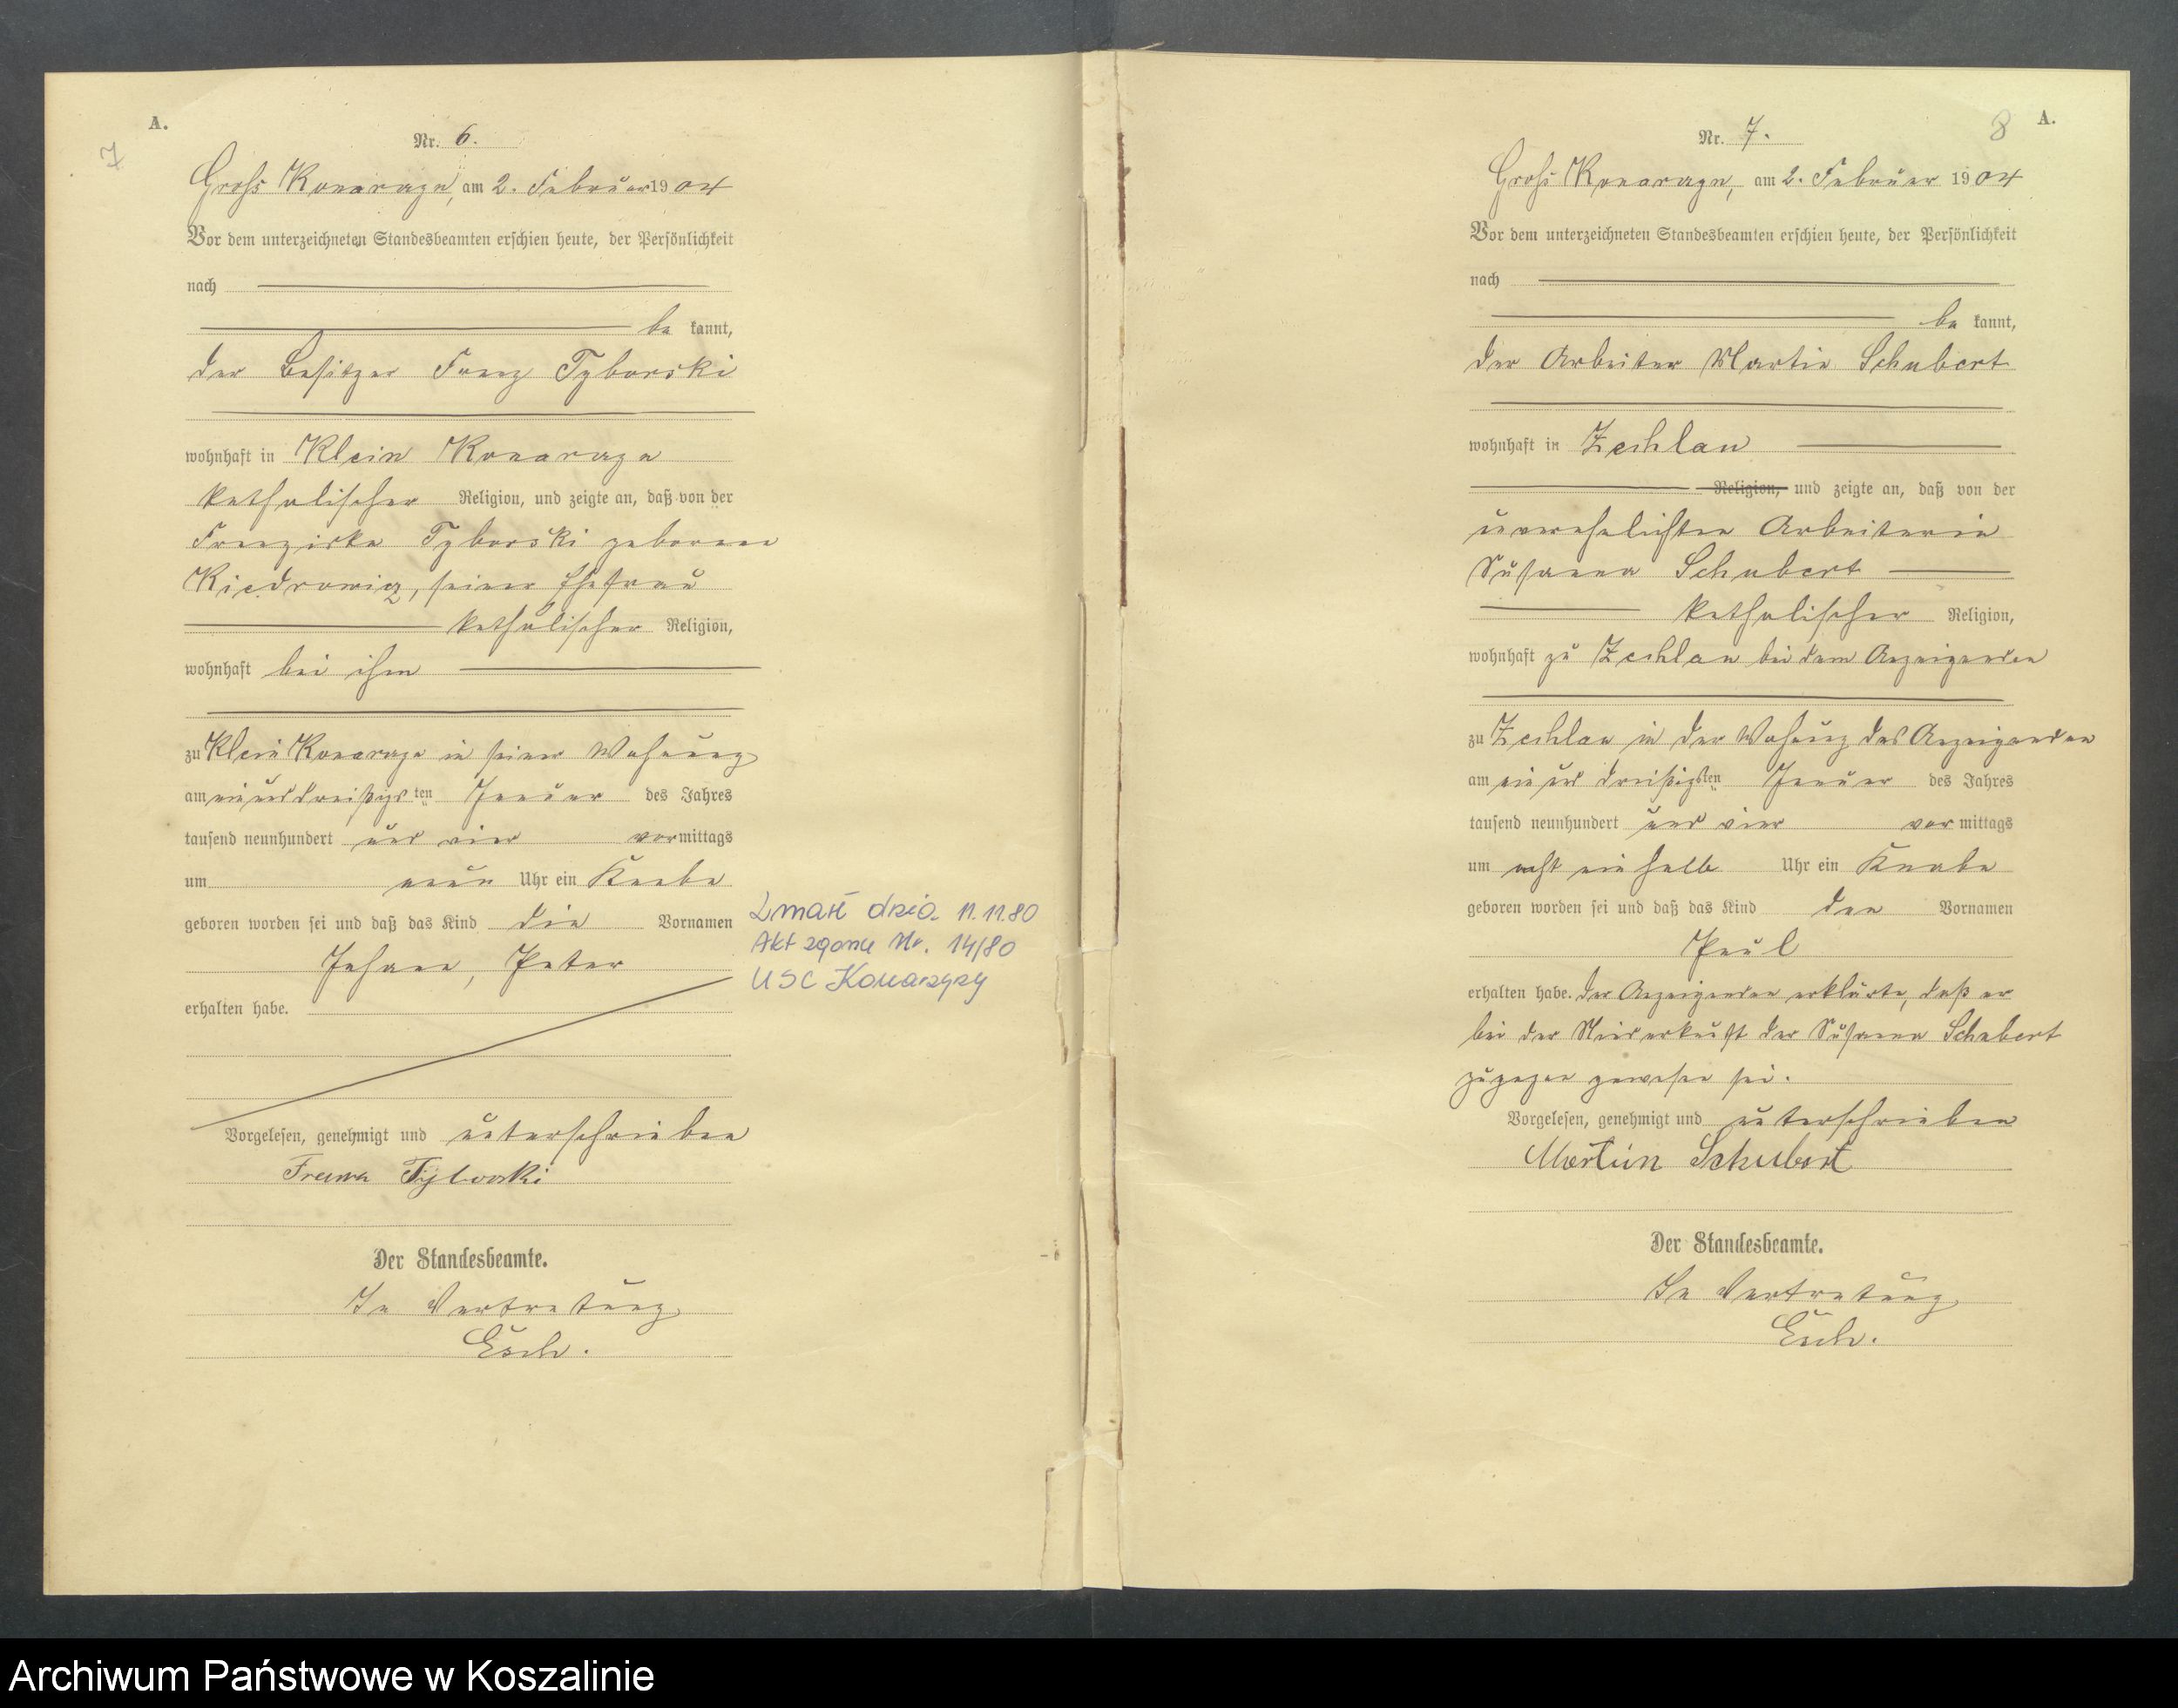 A.
7
Nr. 6.
Gross Konarzyn, am 2. Februar 1904
Vor dem unterzeichneten Standesbeamten erschien heute, der Persönlichkeit
nach
be kannt,
der Besitzer Franz Tyborski
wohnhaft in Klein Konarzyn
katholischer Religion, und zeigte an, daß von der
Franziska Tyborski geborene
Kiedrowicz, seiner Ehefrau
katholischer Religion,
wohnhaft bei ihm
zu Klein Konarzyn in seiner Wohnung
am einunddreißigsten Januar des Jahres
tausend neunhundert und vier vormittags
um neun Uhr ein Knabe
geboren worden sei und daß das Kind die Vornamen
Johann, Peter
erhalten habe.
Vorgelesen, genehmigt und unterschrieben
Tyborski
Der Standesbeamte.
In Vertretung
Esch.
Zmarł dnia 11.11.80
Akt zgonu Nr. 14/80
USC Konarzyny
8
A.
Nr. 7.
Gross Konarzyn, am 2. Februar 1904
Vor dem unterzeichneten Standesbeamten erschien heute, der Persönlichkeit
nach
be kannt,
der Arbeiter Martin Schubert
wohnhaft in Zechlau
Religion, und zeigte an, daß von der
unverehelichten Arbeiterin
Susanna Schubert
katholischer Religion,
wohnhaft zu Zechlau bei dem Anzeigenden
zu Zechlau in der Wohnung des Anzeigenden
am einunddreißigsten Januar des Jahres
tausend neunhundert und vier vormittags
um acht ein halb Uhr ein Knabe
geboren worden sei und daß das Kind den Vornamen
Paul
erhalten habe. Der Anzeigende erklärte, daß er
bei der Niederkunft der Susanna Schubert
zugegen gewesen sei.
Vorgelesen, genehmigt und unterschrieben
Martin Schubert
Der Standesbeamte.
In Vertretung
Esch.
Archiwum Państwowe w Koszalinie